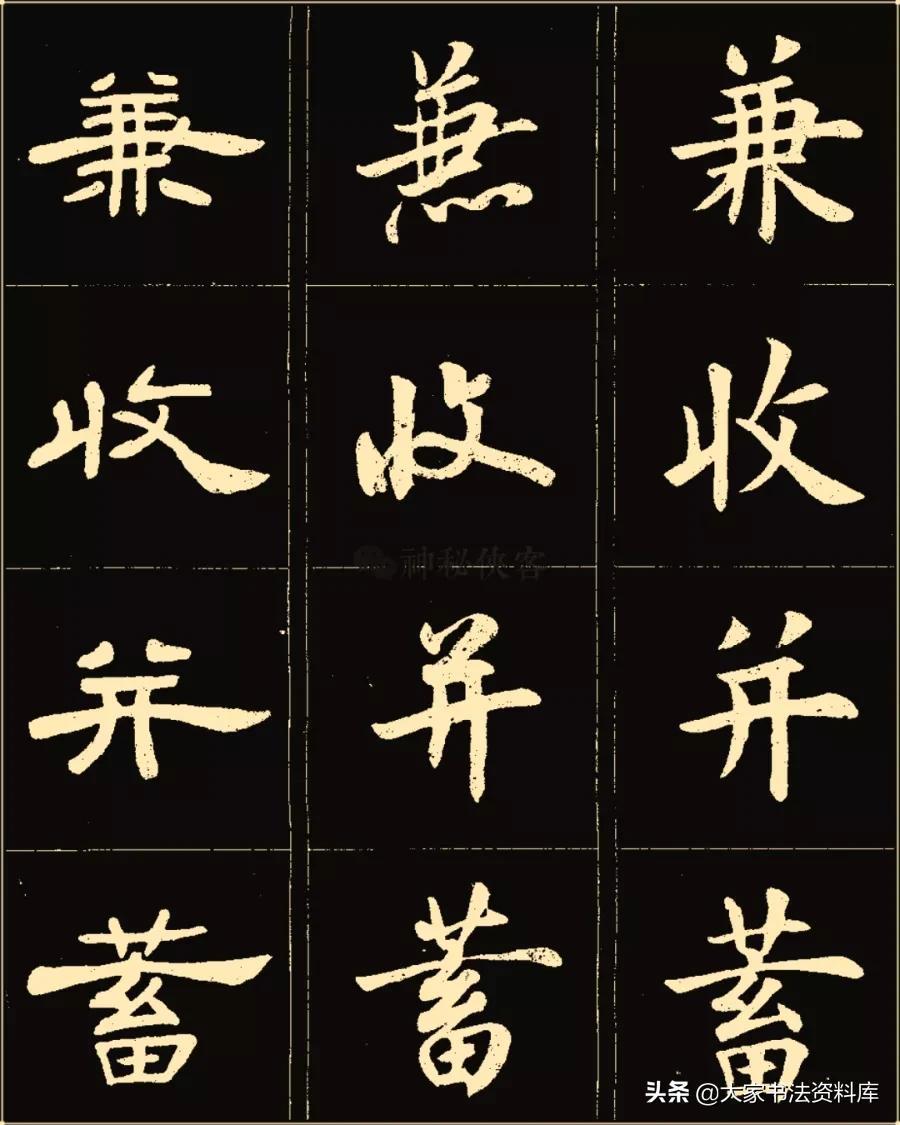 兼 兼 兼
收 收 收
神秘侠客
并 并 并
蓄 蓄 蓄
头条 @大家书法资料库